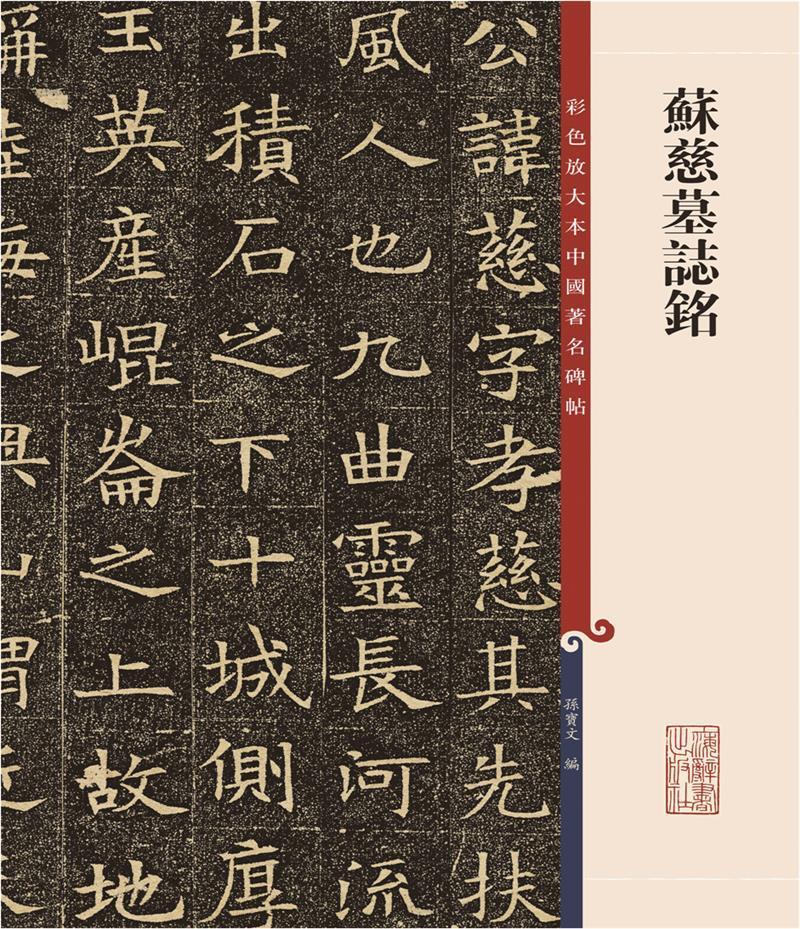 蘇慈墓誌銘
彩色放大本中國著名碑帖
孫寶文 編
公諱慈字孝慈其先扶
風人也九曲靈長河流
出積石之下十城側厚
玉英產崐崙之上故地